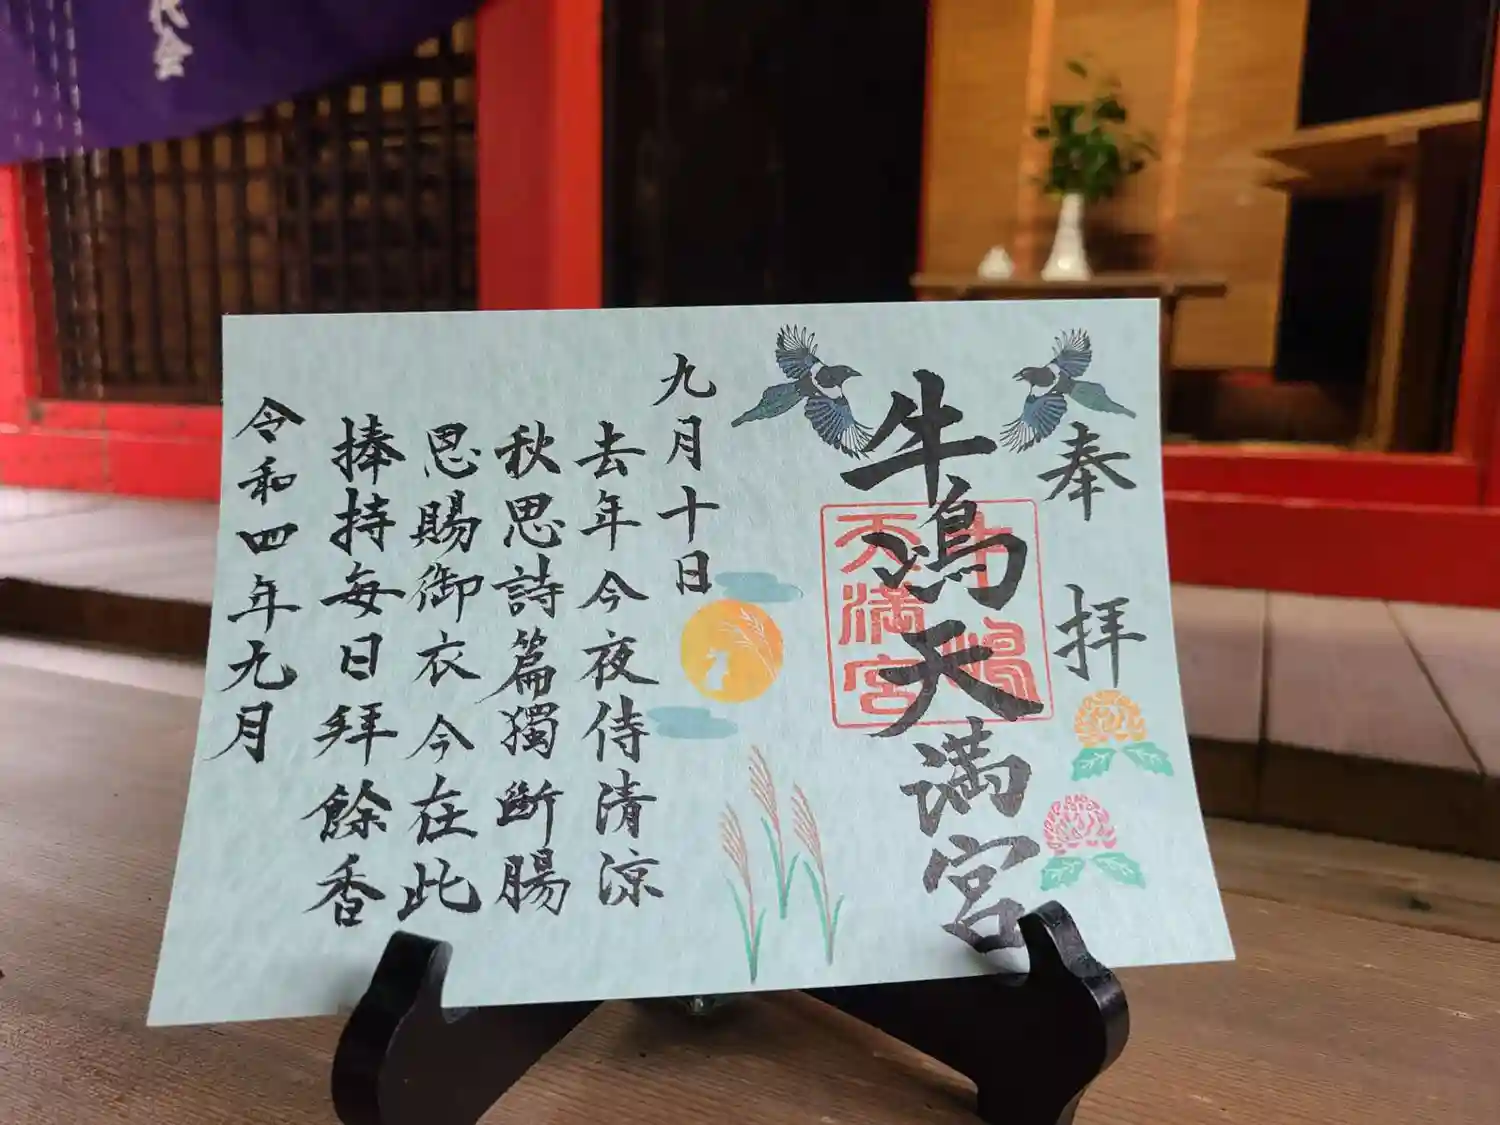 代会
奉拝
牛嶋天満宮
牛嶋
天満宮
九月十日
去年今夜侍清涼
秋思詩篇獨斷腸
恩賜御衣今在此
捧持毎日拜餘香
令和四年九月